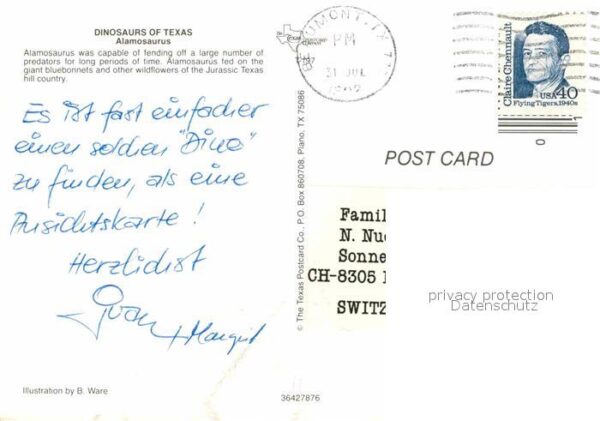 DINOSAURS OF TEXAS
Alamosaurus
Alamosaurus was capable of fending off a large number of
predators for long periods of time. Alamosaurus fed on the
giant bluebonnets and other wildflowers of the Jurassic Texas
hill country.
Es ist fast einfacher
einen solchen "Dino"
zu finden, als eine
Ansichtskarte!
Herzlichst
+ Margrit
Illustration by B. Ware
© The Texas Postcard Co., P.O. Box 860708, Plano, TX 75086
36427876
PM
31 JUL
Claire Chennault
USA 40
Flying Tigers, 1940s
POST CARD
Famil
N. Nu
Sonne
CH-8305
SWITZ
privacy protection
Datenschutz